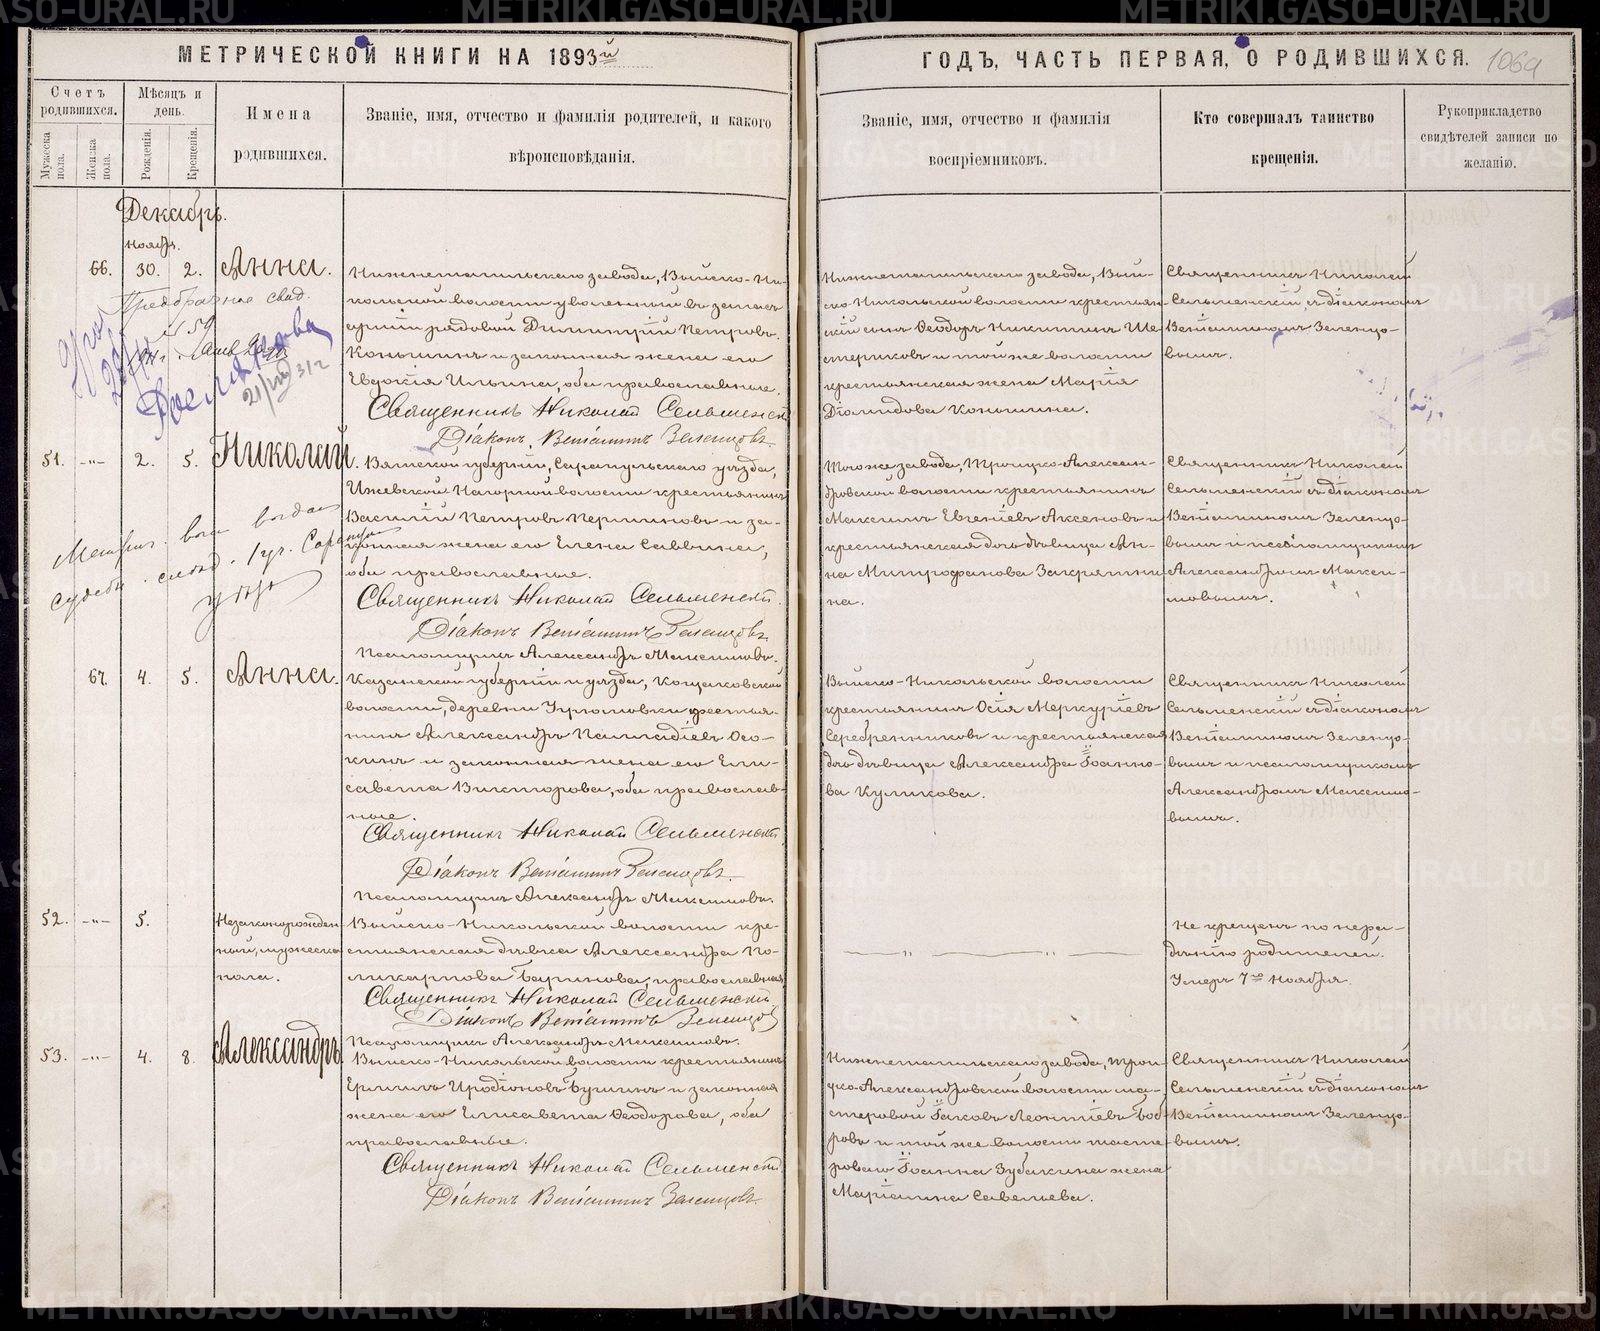 МЕТРИЧЕСКОЙ КНИГИ НА 1893й
ГОДЪ, ЧАСТЬ ПЕРВАЯ, О РОДИВШИХСЯ.
106а
Счетъ родившихся.
Мѣсяцъ и день.
Мужеска пола.
Женска пола.
Рожденія.
Крещенія.
Имена родившихся.
Званіе, имя, отчество и фамилія родителей, и какого
вѣроисповѣданія.
Званіе, имя, отчество и фамилія
воспріемниковъ.
Кто совершалъ таинство
крещенія.
Рукоприкладство
свидѣтелей записи по
желанію.
Декабрь.
Ноябр.
66. 30. 2. Анна.
Нижнетагильскаго завода, Выйско-Ни-
кольской волости уволенный въ запасъ
арміи рядовой Димитрій Петровъ
Коньшинъ и законная жена его
Евдокія Ильина, оба православные.
Священникъ Николай Сельменскій
Діаконъ Веніаминъ Зеленцовъ
Нижнетагильскаго завода, Вый-
ско-Никольской волости крестьян-
скій сынъ Ѳеодоръ Никитинъ Ше-
стериковъ и той же волости
крестьянская жена Марія
Діомидова Коньшина.
Священникъ Николай
Сельменскій съ діакономъ
Веніаминомъ Зеленцо-
вымъ.
51. -"- 2. 5. Николай.
Вятской губерніи, Сарапульскаго уѣзда,
Ижевской Нагорной волости крестьянинъ
Василій Петровъ Перминовъ и за-
конная жена его Елена Саввина,
оба православные.
Священникъ Николай Сельменскій.
Діаконъ Веніаминъ Зеленцовъ
Псаломщикъ Александръ Максимовъ.
Того же завода, Троицко-Алексан-
дровской волости крестьянинъ
Максимъ Евгеніевъ Аксеновъ и
крестьянская дочь дѣвица Ан-
на Митрофанова Закрятки
на.
Священникъ Николай
Сельменскій съ діакономъ
Веніаминомъ Зеленцо-
вымъ и псаломщикомъ
Александромъ Макси-
мовымъ.
67. 4. 5. Анна.
Казанской губерніи и уѣзда, Кощаковской
волости, деревни крестья-
нинъ Александръ Палладіевъ Осо-
кинъ и законная жена его Ели-
савета Викторова, оба православ-
ные.
Священникъ Николай Сельменскій
Діаконъ Веніаминъ Зеленцовъ.
Псаломщикъ Александръ Максимовъ.
Выйско-Никольской волости
крестьянинъ Осія Меркуріевъ
Серебренниковъ и крестьянская
дочь дѣвица Александра Іоанно-
ва Куликова.
Священникъ Николай
Сельменскій съ діакономъ
Веніаминомъ Зеленцо-
вымъ и псаломщикомъ
Александромъ Максимо-
вымъ.
52. -"- 5.
Незаконорожден
ный, мужеска
пола.
Выйско-Никольской волости кре-
стьянская дѣвка Александра По-
ликарпова Баринова, православная
Священникъ Николай Сельменскій.
Діаконъ Веніаминъ Зеленцовъ
Псаломщикъ Александръ Максимовъ.
Не крещенъ по нера-
дѣнію родителей.
Умеръ 7го Ноября.
53. -"- 4. 8. Александръ.
Выйско-Никольской волости крестьянинъ
Ермилъ Иродіоновъ Бушинъ и законная
жена его Елисавета Ѳеодорова, оба
православные.
Священникъ Николай Сельменскій
Діаконъ Веніаминъ Зеленцовъ
Нижнетагильскаго завода, Трои
цко-Александровской волости ма-
стеровой Іаковъ Леонтіевъ Боб-
ровъ и той же волости масте
роваго Іоанна Зубакина жена
Маріанна Савельева.
Священникъ Николай
Сельменскій съ діакономъ
Веніаминомъ Зеленцо-
вымъ.
METRIKI.GASO-URAL.RU